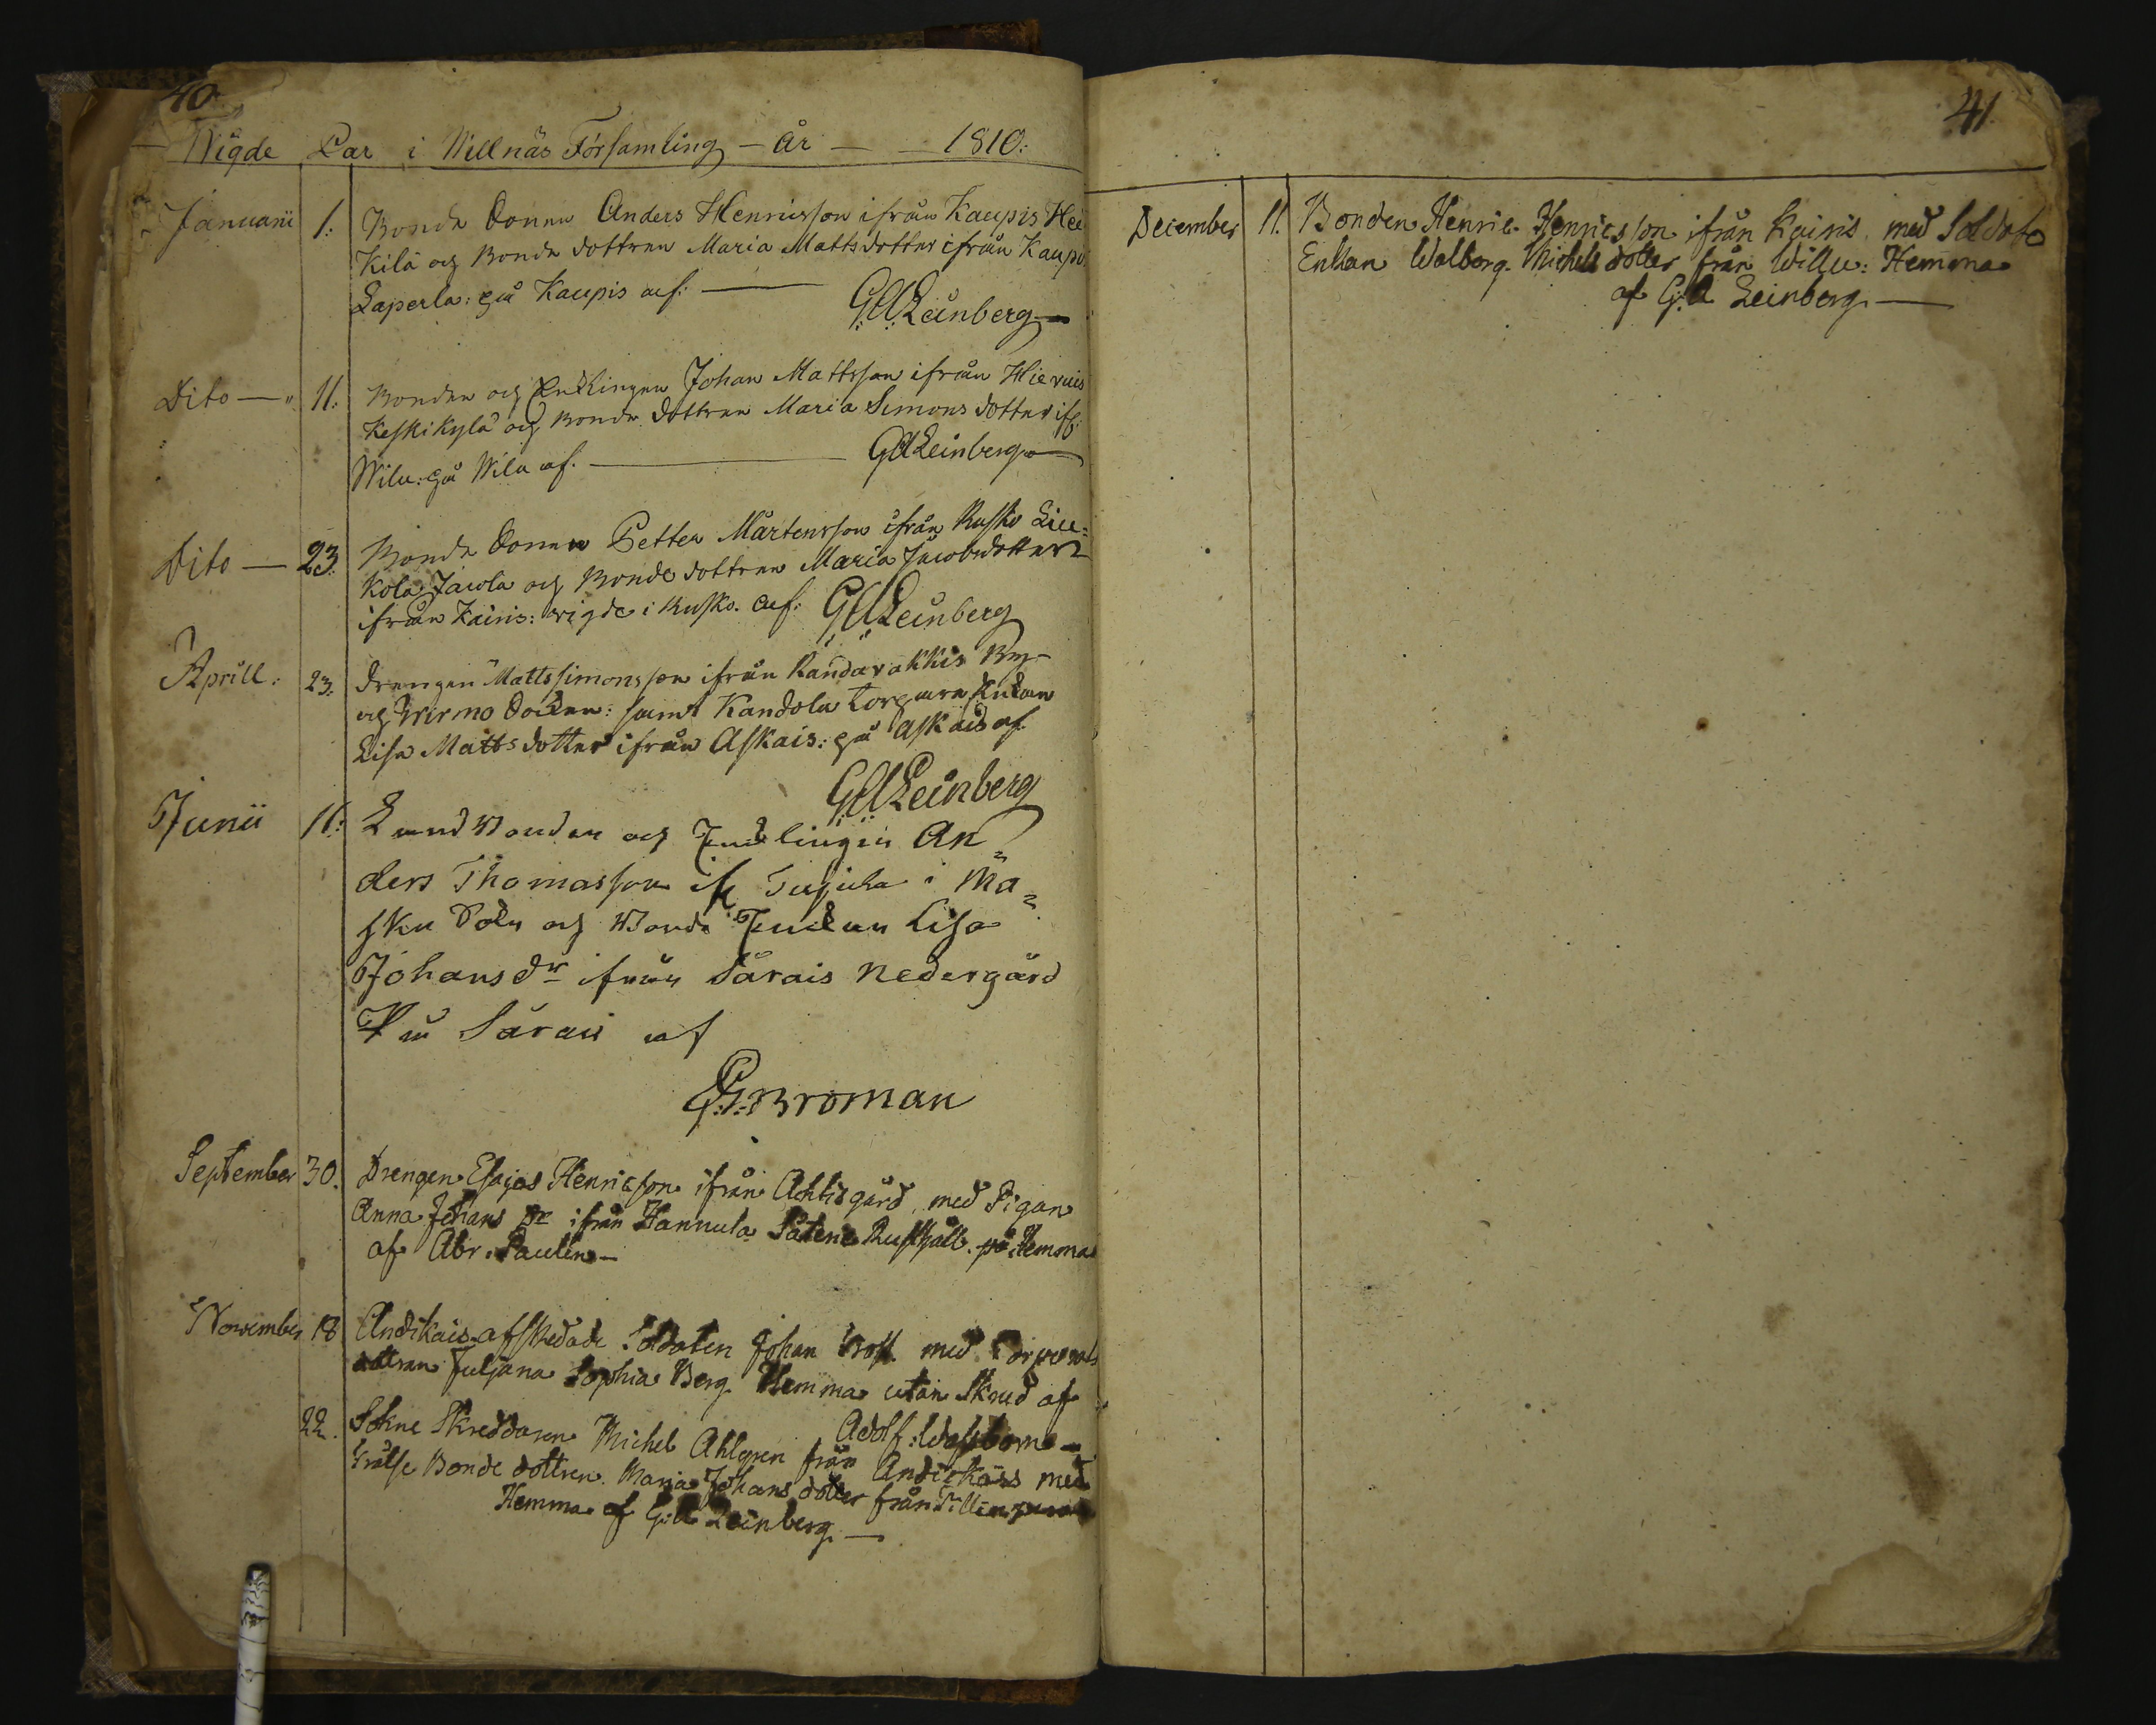 40.
Wigde Par i Willnäs Församling – år – – 1810:
Januarii 1: Bonde Sonen Anders Henricsson ifrån Kaupis Hei
Kilä och Bonde dottren Maria Matts dotter ifrån Kaupis
Laperla: på Kaupis af: –
G:A:Leinberg –
Dito – 11: Bonden och Enklingen Johan Mattsson ifrån Hiervis
Keskikylä och Bonde dottren Maria Simons dotter ifr:
Wilu: på Wilu af. – GALeinberg –
Dito – 23: Bonde Sonen Petter Mårtensson ifrån Rusko Liu=
Kola Jacola och Bonde dottren Maria Jacobsdotter
ifrån Kairis: wigde i Rusko. af: G:A:Leinberg
Aprill: 23: Drengen Matts Simonsson ifrån Kandarakkis By
och Wirmo Socken: samt Kandola Torpare Enkan
Lisa Matts dotter ifrån Askais: på Askais af.
G:A:Leinberg
Junii 11: Landbonden och Enklingen An=
ders Thomasson ifr i Ma=
sku Sokn och Bonde Enkan Lisa
Johans dr ifrån Särais Nedergård
På Särais af
G:Broman
September 30. Drengen Esajas Henricson ifrån Achtisgård, med Pigan
Anna Johans Dr ifrån Hannula Säteri Rusthåll. på Hemma
af Abr. Paulin –
November 18 Andikais afskedade Soldaten Johan med Corporals
dottran Juljana Sophia Berg. Hemma utan Skrud af
Adolf: Wassbom –
22. Sokne Skreddaren Michel Ahlgren från Andickais med
Frälse Bonde dottren Maria Johans dotter från
Hemma af G:A Leinberg. –
41.
December 11. Bonden Henric Henricsson ifrån Kairis med Soldats
Enkan Walborg Michels dotter från Willu: Hemma
af G:A Leinberg –